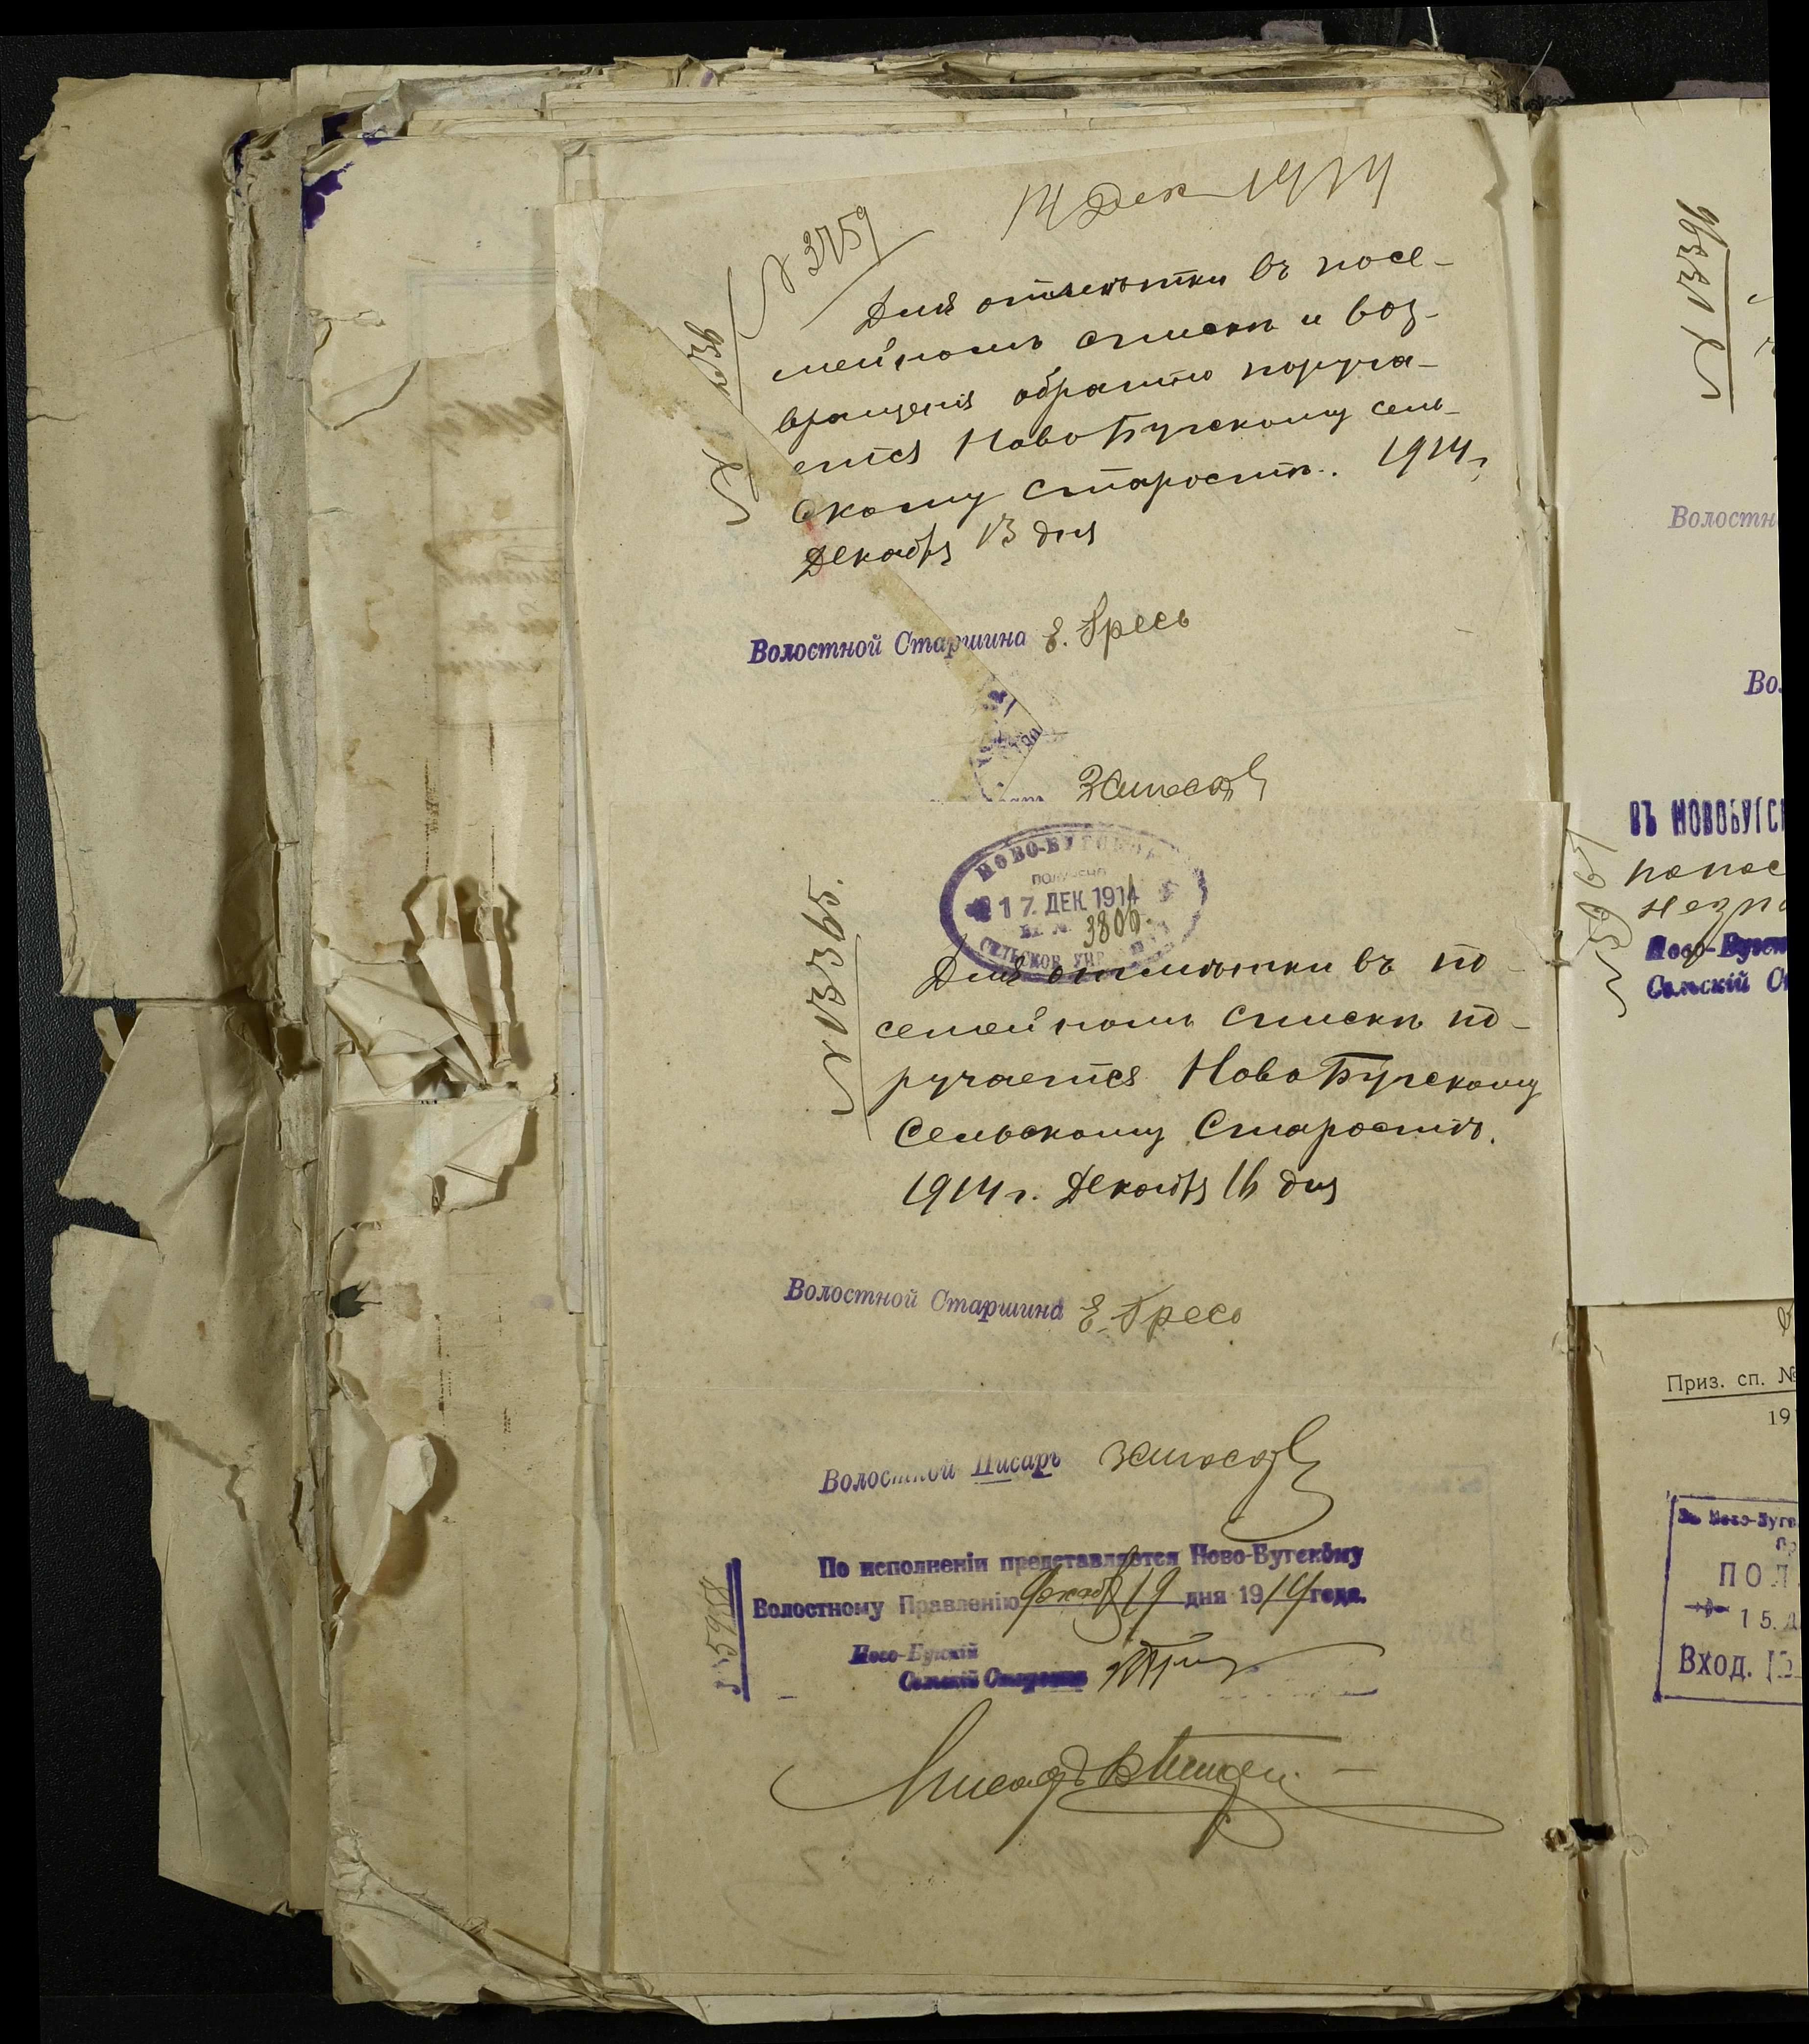 14 Дек 1914
№ 3759
Для отмѣтки въ посе-
мейномъ спискѣ и воз-
вращенія обратно поруча-
ется Ново Бугскому сель-
скому старостѣ. 1914 г.
Декабря 13 дня
Волостной Старшина Е. Гресь
НОВО-БУГСКОЕ
ПОЛУЧЕНО
17. ДЕК. 1914
Вх. № 3806
СЕЛЬСКОЕ УПР
№ 13365.
Для отмѣтки въ по-
семейномъ спискѣ по-
ручается Ново Бугскому
Сельскому Старостѣ.
1914 г. Декабря 16 дня
Волостной Старшина Е. Гресь
Волостной Писарь
По исполненіи представляется Ново-Бугскому
Волостному Правленію Декабря 19 дня 1914 года.
Ново-Бугскій
Сельскій Староста
Писарь
Волостн
Во
ВЪ НОВОБУГСК
Ново-Бугск
Сельскій Ст
Приз. сп. №
19
Въ Ново-Бугс
ПОЛ
15. Д
Вход.